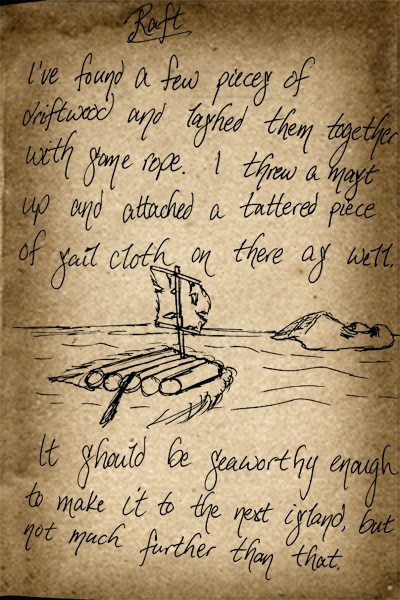 Raft
I've found a few pieces of
driftwood and lashed them together
with some rope. I threw a mast
up and attached a tattered piece
of sail cloth on there as well.
It should be seaworthy enough
to make it to the next island, but
not much further than that.